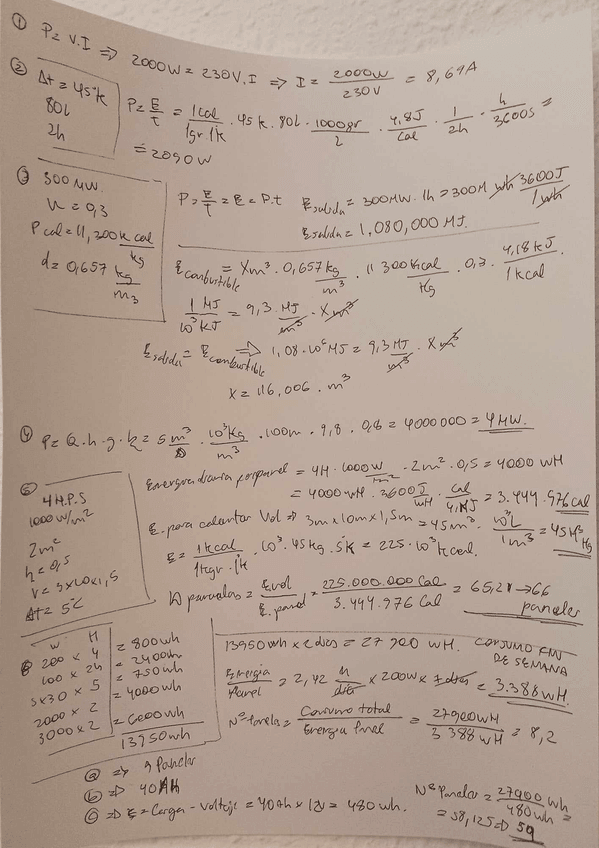 ① P = V.I => 2000W = 230V.I => I = 2000W / 230V = 8,69A
② Δt = 45°K
80l
2h
P = E/t = 1cal / 1gr 1°K . 45 K . 80l . 1000gr / l . 4,8J / cal . 1 / 2h . h / 3600s =
= 2090 W
③ 300 MW.
n = 0,3
Pcal = 11,300 kcal / kg
d = 0,657 kg / m3
P = E/t = E = P.t
Esalida = 300MW. 1h = 300M wh 3600J / 1wh
Esalida = 1,080,000 MJ.
Ecombustible = Xm³ . 0,657 kg / m³ . 11300Kcal / Kg . 0,3 . 4,18 kJ / 1kcal .
1 MJ / 10³ KJ = 9,3 . MJ / m³ . X m³
Esalida = Ecombustible => 1,08.10⁶ MJ = 9,3 MJ / m³ . X m³
X = 116,006 . m³
④ P = Q.h.g.η = 5 m³ / s . 10³Kg / m³ . 100m . 9,8 . 0,8 = 4000000 = 4MW.
4 H.P.S
1000 W/m²
2m²
h = 0,5
V = 3x10x1,5
Δt = 5°C
Energia diaria por panel = 4H . 1000W / m² . 2m² . 0,5 = 4000 WH
= 4000 WH . 3600J / WH . Cal / = 3.444.976 Cal
E. para calentar Vol => 3m x 10m x 1,5m = 45m³ . 10³L / 1m³ = 45
E = 1kcal / 1kgr . 1°K . 10³ . 45Kg . 5K = 225 . 10³ Kcal.
Nº paneles = E.vol / E.panel = 225.000.000 Cal / 3.444.976 Cal = 65,2 → 66 paneles
W H
200 x 4 = 800wh
100 x 24 = 2400wh
5x30 x 5 = 750wh
2000 x 2 = 4000wh
3000 x 2 = 6000wh
13950wh
13950wh x 2 dias = 27900 WH. CONSUMO FIN DE SEMANA
Energia / Panel = 2,42 H / dia x 200W x 7 dias = 3.388 WH.
Nº Panele = Consumo total / Energia = 27900WH / 3388 WH = 8,2
ⓐ => 9 Paneles
ⓑ => 40 AH
ⓒ => E = Carga - voltaje = 40Ah x 12v = 480 wh.
Nº Paneles = 27900 wh / 480wh =
= 58,125 => 59